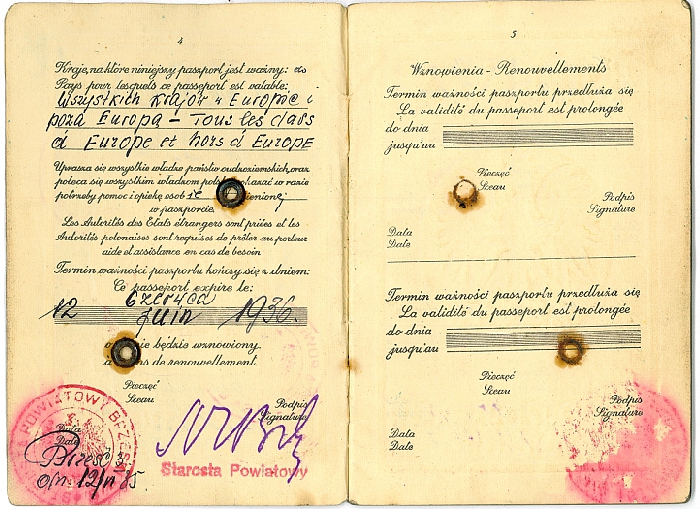 4
Kraje, na które niniejszy paszport jest ważny:
Pays pour lesquels ce passeport est valable:
Wszystkich krajów w Europie i
poza Europą – Tous les
d Europe et hors d Europe
Uprasza się wszystkie władze państw cudzoziemskich, oraz
poleca się wszystkim władzom okazać w razie
potrzeby pomoc i opiekę
w paszporcie
Les Autorités des Etats étrangers sont priées et les
Autorités polonaises sont requises de prêter au porteur
aide et assistance en cas de besoin
Termin ważności paszportu kończy się z dniem:
Ce passeport expire le:
12 Czerwca
juin 1936.
będzie wznowiony
de renouvellement
Pieczęć
Sceau
Podpis
Signature
Starosta Powiatowy
POWIATOWY
Data
Date
Brześć
12/VI 35
5
Wznowienia - Renouvellements
Termin ważności paszportu przedłuża się
La validité du passeport est prolongée
do dnia
jusqu'au
Pieczęć
Sceau
Podpis
Signature
Data
Date
Termin ważności paszportu przedłuża się
La validité du passeport est prolongée
do dnia
jusqu'au
Pieczęć
Sceau
Podpis
Signature
Data
Date